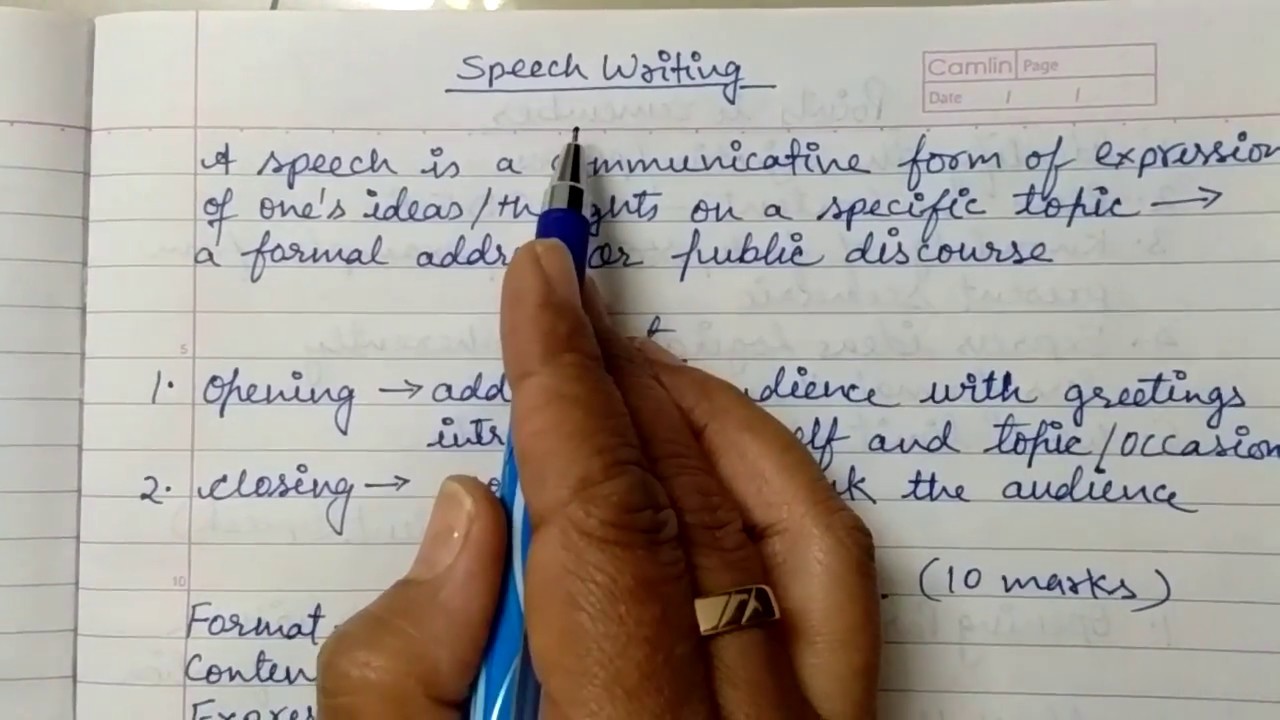 Speech Writing
Camlin Page
Date / /
A speech is a mmunicative form of expression
of one's ideas/th ghts on a specific topic →
a formal addre or public discourse
5
1. Opening → add dience with greetings
intr elf and topic/occasion
2. closing → the audience
10
(10 marks)
Format
Conten
Expres